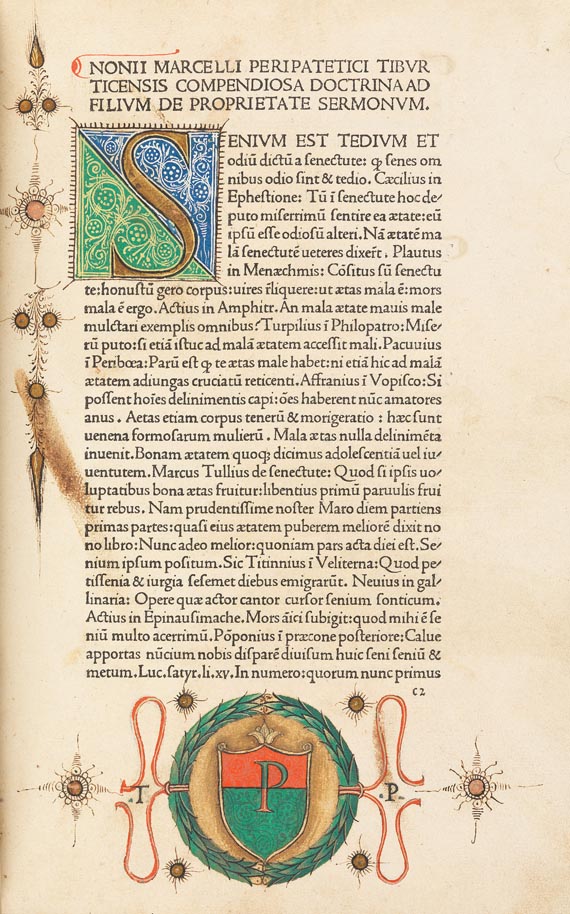 NONII MARCELLI PERIPATETICI TIBVR
TICENSIS COMPENDIOSA DOCTRINA AD
FILIVM DE PROPRIETATE SERMONVM.
SENIVM EST TEDIVM ET
odiū dictū a senectute: ꝙ senes om
nibus odio sint & tedio. Cæcilius in
Ephestione: Tū ī senectute hoc de/
puto miserrimū sentire ea ætate: eū
ipsū esse odiosū alteri. Nā ætatē ma
lā senectutē ueteres dixert̄. Plautus
in Menæchmis: Cōsitus sū senectu
te: honustū gero corpus: uires r̄liquere: ut ætas mala ē: mors
mala ē ergo. Actius in Amphitr. An mala ætate mauis male
mulctari exemplis omnibus? Turpilius ī Philopatro: Mise/
rū puto: si etiā istuc ad malā ætatem accessit mali. Pacuuius
ī Peribœa: Parū est ꝙ te ætas male habet: ni etiā hic ad malā
ætatem adiungas cruciatū reticenti. Affranius ī Vopisco: Si
possent hoīes delinimentis capi: ōes haberent nūc amatores
anus. Aetas etiam corpus tenerū & morigeratio: hæc sunt
uenena formosarum mulierū. Mala ætas nulla delinimēta
inuenit. Bonam ætatem quoq; dicimus adolescentiā uel iu/
uentutem. Marcus Tullius de senectute: Quod si ipsis uo/
luptatibus bona ætas fruitur: libentius primū paruulis frui
tur rebus. Nam prudentissime noster Maro diem partiens
primas partes: quasi eius ætatem puberem meliorē dixit no
no libro: Nunc adeo melior: quoniam pars acta diei est. Se/
nium ipsum positum. Sic Titinnius ī Veliterna: Quod pe/
tissenia & iurgia sesemet diebus emigrarūt. Neuius in gal/
linaria: Opere quæ actor cantor cursor senium sonticum.
Actius in Epinausimache. Mors āici subigit: quod mihi ē se
niū multo acerrimū. Pōponius ī præcone posteriore: Calue
apportas nūcium nobis disparē diuisum huic seni seniū &
metum. Luc. satyr. li. xv. In numero: quorum nunc primus
c2
.T.
P
.P.